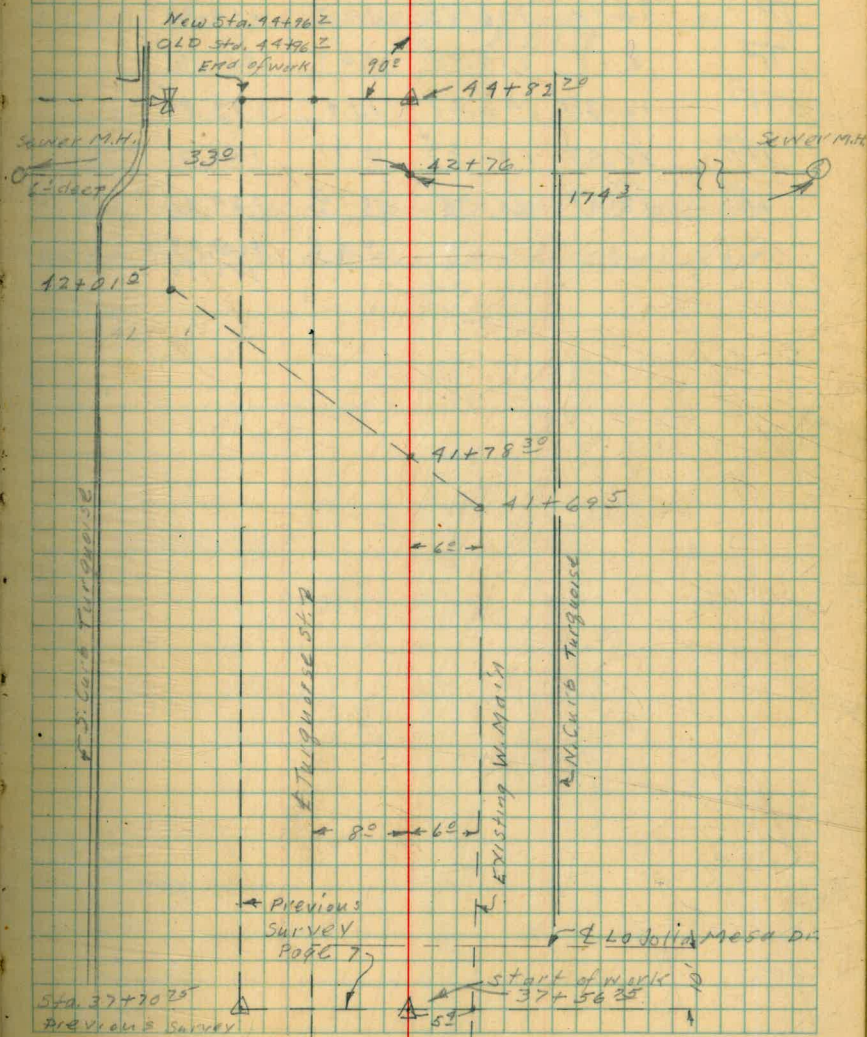 New Sta. 44+96 2
OLD Sta. 44+96 2
End of work
90º
44+82 70
Sewer M.H.
33 0
42+76
Sewer M.H.
deep
174 3
42+01 5
41+78 30
41+69 5
6 0
S. Curb Turquoise
℄ Turquoise St.
Existing W. Main
N. Curb Turquoise
8 0
6 0
Previous
Survey
Page 7
℄ La Jolla Mesa Dr.
Start of work
Sta. 37+70 75
37+56 75
10'
Previous Survey
5